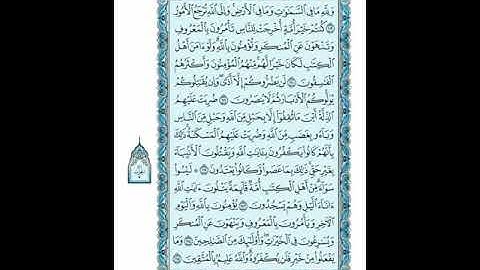 وَلِلَّهِ مَا فِي السَّمَٰوَٰتِ وَمَا فِي الْأَرْضِ وَإِلَى اللَّهِ تُرْجَعُ الْأُمُورُ
١٠٩ كُنتُمْ خَيْرَ أُمَّةٍ أُخْرِجَتْ لِلنَّاسِ تَأْمُرُونَ بِالْمَعْرُوفِ
وَتَنْهَوْنَ عَنِ الْمُنكَرِ وَتُؤْمِنُونَ بِاللَّهِ وَلَوْ ءَامَنَ أَهْلُ
الْكِتَٰبِ لَكَانَ خَيْرًا لَّهُم مِّنْهُمُ الْمُؤْمِنُونَ وَأَكْثَرُهُمُ
الْفَٰسِقُونَ ١١٠ لَن يَضُرُّوكُمْ إِلَّا أَذًى وَإِن يُقَٰتِلُوكُمْ
يُوَلُّوكُمُ الْأَدْبَارَ ثُمَّ لَا يُنصَرُونَ ١١١ ضُرِبَتْ عَلَيْهِمُ
الذِّلَّةُ أَيْنَ مَا ثُقِفُوا إِلَّا بِحَبْلٍ مِّنَ اللَّهِ وَحَبْلٍ مِّنَ النَّاسِ
وَبَاءُو بِغَضَبٍ مِّنَ اللَّهِ وَضُرِبَتْ عَلَيْهِمُ الْمَسْكَنَةُ ذَٰلِكَ
بِأَنَّهُمْ كَانُوا يَكْفُرُونَ بِـَٔايَٰتِ اللَّهِ وَيَقْتُلُونَ الْأَنبِيَاءَ
بِغَيْرِ حَقٍّ ذَٰلِكَ بِمَا عَصَوا وَّكَانُوا يَعْتَدُونَ ١١٢ ۞ لَيْسُوا
سَوَاءً مِّنْ أَهْلِ الْكِتَٰبِ أُمَّةٌ قَائِمَةٌ يَتْلُونَ ءَايَٰتِ اللَّهِ
ءَانَاءَ الَّيْلِ وَهُمْ يَسْجُدُونَ ١١٣ يُؤْمِنُونَ بِاللَّهِ وَالْيَوْمِ
الْءَاخِرِ وَيَأْمُرُونَ بِالْمَعْرُوفِ وَيَنْهَوْنَ عَنِ الْمُنكَرِ
وَيُسَٰرِعُونَ فِي الْخَيْرَٰتِ وَأُولَٰئِكَ مِنَ الصَّٰلِحِينَ ١١٤ وَمَا
يَفْعَلُوا مِنْ خَيْرٍ فَلَن يُكْفَرُوهُ وَاللَّهُ عَلِيمٌ بِالْمُتَّقِينَ ١١٥